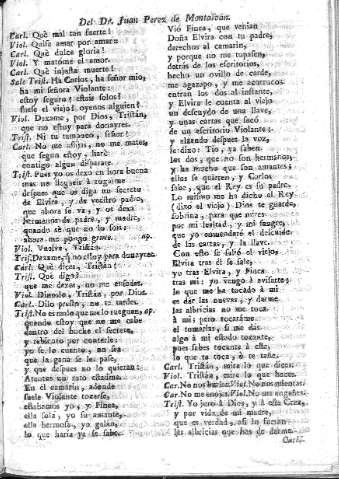 Del Dr. Juan Perez de Montalván.
Carl. Què mal tan fuerte!
Viol. Quise amar por amar:
Carl. Què dulce gloria!
Viol. Y matóme el amor.
Carl. Què injusta muerte!
Sale Trist. Ha Carlos, ha señor mio,
ha mi señora Violante:
estoy seguro? estais solos?
fuese el viejo? oyenos alguien?
Viol. Dexame, por Dios, Tristán,
que no estoy para donayres.
Trist. Ni tu tampoco, señor?
Carl. No me assijas, no me mates,
que segun estoy, harè
contigo algun disparate.
Trist. Pues yo os dexo en hora buena
mas no llegueis à rogarme
despues que os diga un secreto
de Elvira, y de vuestro padre,
que ahora se và, y os dexa
hermanos de padre, y madre,
quando sè que no lo sois:
ahora me pongo grave. ap.
Viol. Vuelve, Tristán.
Trist. Dexame, q no estoy para donayres.
Carl. Què dices, Tristán?
Trist. Què digo?
que me dexes, no me enfades.
Viol. Dimelo, Tristán, por Dios.
Carl. Dilo presto, no te tardes.
Trist. No es malo que me lo rueguen, ap.
quando estoy que no me cabe
dentro del buche el secreto,
y rebiento por contarle:
yo se lo cuento, no sea
que la gana se les passe,
y que despues no lo quieran:
Atentos un rato estadme.
En el camarin, adonde
suele Violante tocarse,
estabamos yo, y Finea,
ella sola, yo su amante,
ella hermosa, yo galán,
lo que haria ya se sabe.
Viò Finea, que venian
Doña Elvira con tu padre,
derechos al camarin,
y porque no me topassen,
detràs de los escritorios,
hecho un ovillo de carde,
me agazapo, y me acocorro:
entran los dos al instante,
y Elvira le cuenta al viejo
un descuydo de una llave,
y unas cartas que sacó
de un escritorio Violante:
y alzando despues la voz,
le dixo: Tio, ya saben
los dos, que no son hermanos,
y ha mucho que son amantes;
ellos se quieren, y Carlos
sabe, que el Rey es su padre.
Lo mismo me ha dicho el Rey
(dixo el viejo) Dios te guarde,
sobrina, para que mires
por mi lealtad, y mi sangre,
que yo enmendarè el descuido
de las cartas, y la llave.
Con esto se saliò el viejo,
Elvira tras èl se sale,
yo tras Elvira, y Finea
tras mi: yo vengo à avisarte;
lo que me ha tocado à mi
es dar las nuevas, y darme
las albricias no me toca
à mi; pero tocaràme
el tomarlas, si me dàs
algo à mi estado tocante,
pues sabes tocante à esto,
lo que te toca, à te tañe.
Carl. Tristán, mira lo que dices.
Viol. Tristán, mira lo que haces.
Car. No nos burles. Viol. No nos mientas.
Car. No me enojes. Viol. No me engañes.
Trist. Yo juro à Dios, y à esta Cruz,
y por vida de mi madre,
que es verdad, assi lo fueran
las albricias que has de darme.
Carl.